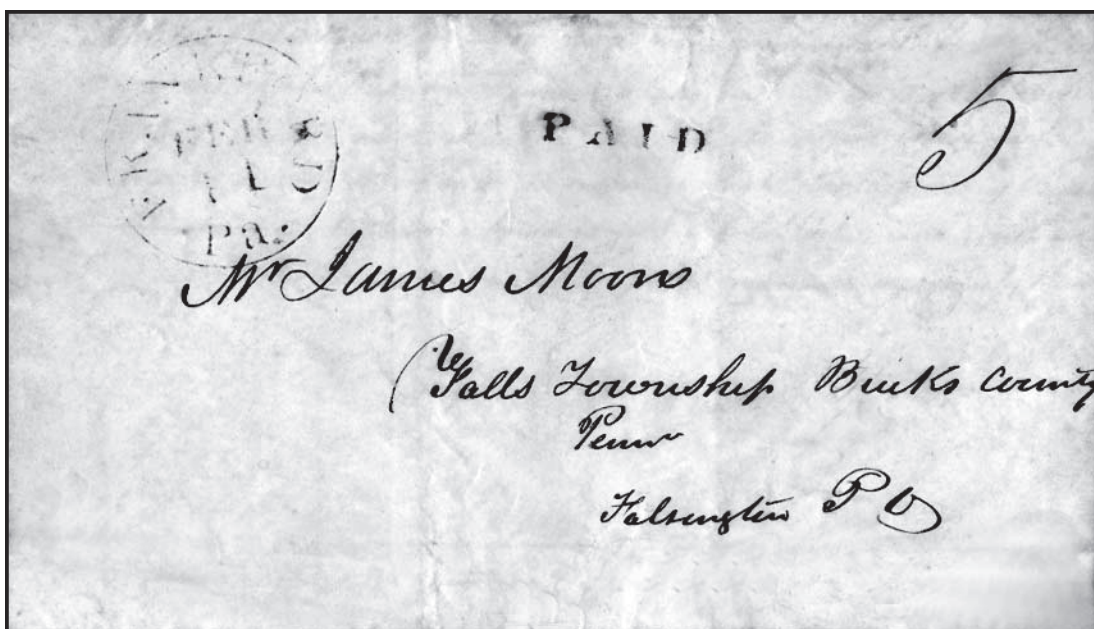 FEB
11
Pa:
PAID
5
Mr James Moon
Falls Township Bucks County
Penna
Falsington P O